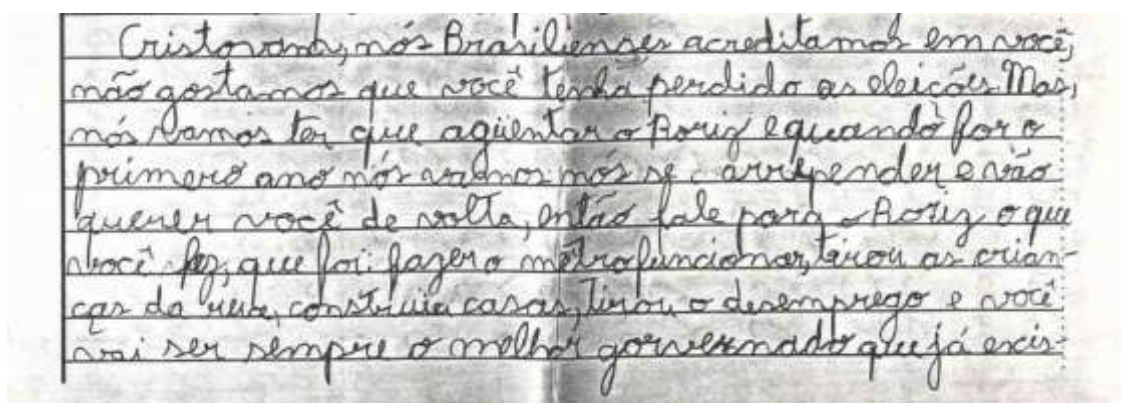 Cristovam, nós Brasilienses acreditamos em você,
não gostamos que você tenha perdido as eleições. Mas,
nós vamos ter que agüentar o Roriz e quando for o
primero ano nós vamos nós se arrepender e vão
querer você de volta, então fale para o Roriz o que
você fez, que foi: fazer o métro funcionar, tirou as crian-
ças da rua, construiu casas, tirou o desemprego e você
vai ser sempre o melhor gorvernado que já exis-